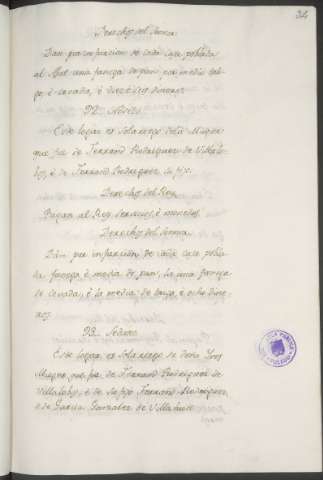 34
Derechos del Señor.
Dan por infurcion de cada casa poblada
al Abat una fanega de pan por medio tri-
go, è cevada, è diez è seis dineros.
92.
Este logar es Solariego de la Muger
que fue de Ferrand Rodriguez de Villalo-
bos, è de Ferrand Rodriguez su fijo.
Derechos del Rey.
Pagan al Rey Servicios, è monedas.
Derechos del Señor.
Dan por infurcion de cada casa pobla-
da fanega è media de pan, la una fanega
de cevada, è la media de trigo, è ocho dine-
ros.
93.
Este logar es Solariego de Doña Ines
Muger que fue de Ferrand Rodriguez de
Villalobos, è de su fijo Ferrand Rodriguez,
è de Garcia Gonzalez de